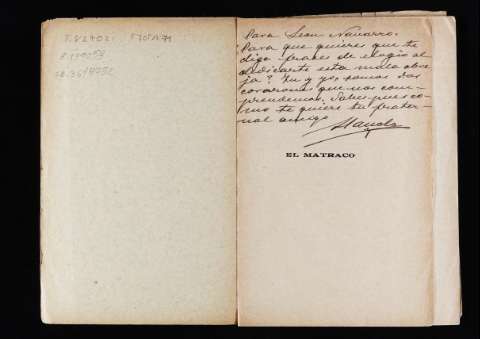 Para Leon Navarro.
Para que quieres que te
diga frases de elogio al
dedicarte esta mala obre-
ja? Tu y yo, somos dos
corazones que nos com-
prendemos. Sabes pues co-
mo te quiere tu frater-
nal amigo
EL MATRACO